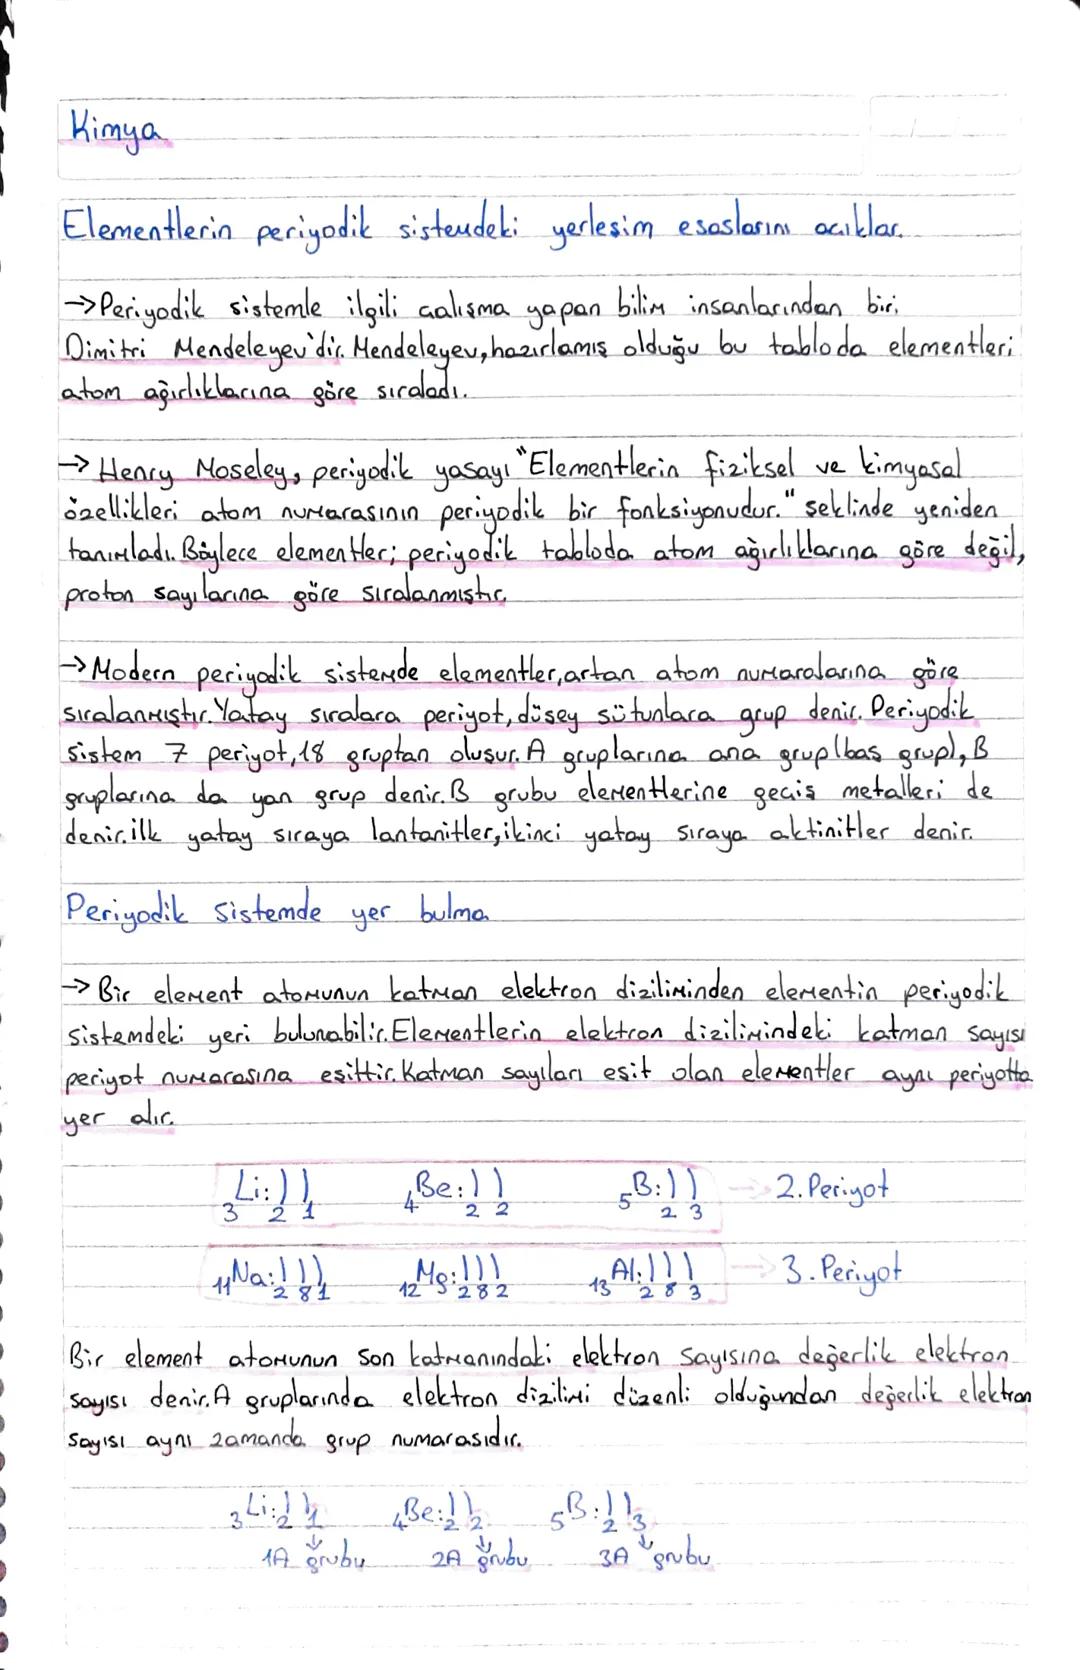 Kimya
Elementlerin periyodik sistemdeki yerleşim esaslarını açıklar.
→Periyodik sistemle ilgili çalışma yapan bilim insanlarından biri,
Dimitri Mendeleyev'dir. Mendeleyev, hazırlamış olduğu bu tabloda elementleri
atom ağırlıklarına göre sıraladı.
→Henry Moseley, periyodik yasayı "Elementlerin fiziksel ve kimyasal
özellikleri atom numarasının periyodik bir fonksiyonudur." şeklinde yeniden
tanımladı. Böylece elementler; periyodik tabloda atom ağırlıklarına göre değil,
proton sayılarına göre sıralanmıştır.
→Modern periyodik sistemde elementler, artan atom numaralarına göre
sıralanmıştır. Yatay sıralara periyot, düşey sütunlara grup denir. Periyodik
sistem 7 periyot, 18 gruptan oluşur. A gruplarına ana grup(baş grup), B
gruplarına da yan grup denir. B grubu elementlerine geçiş metalleri de
denir. ilk yatay sıraya lantanitler, ikinci yatay sıraya aktinitler denir.
Periyodik Sistemde yer bulma
→Bir element atomunun katman elektron diziliminden elementin periyodik
sistemdeki yeri bulunabilir. Elementlerin elektron dizilimindeki katman sayısı
periyot numarasına eşittir. Katman sayıları eşit olan elementler aynı periyotta
yer alır.
3Li:)) 2 1 4Be:)) 2 2 5B:)) 2 3 → 2. Periyot
11Na:))) 2 8 1 12Mg:))) 2 8 2 13Al:))) 2 8 3 → 3. Periyot
Bir element atomunun son katmanındaki elektron sayısına değerlik elektron
sayısı denir. A gruplarında elektron dizilimi düzenli olduğundan değerlik elektron
sayısı aynı zamanda grup numarasıdır.
3Li:)) 2 1 4Be:)) 2 2 5B:)) 2 3
1A grubu 2A grubu 3A grubu